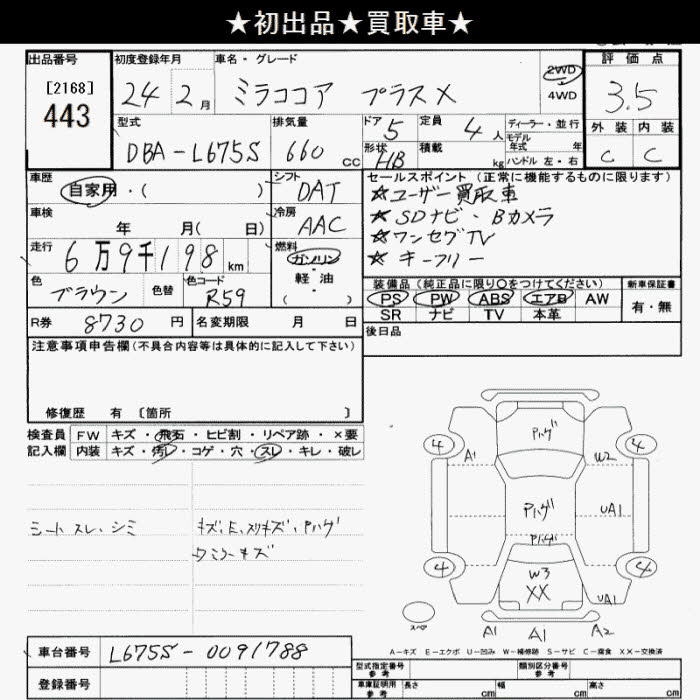 ★初出品★買取車★
出品番号 初度登録年月 車名・グレード 評価点
[2168]
443
24年 2月 ミラココア プラスX 2WD 4WD 3.5
型式 排気量 ドア 5 定員 4人 ディーラー・並行 外装 内装
モデル年式 年
DBA-L675S 660cc 形状 HB 積載 kg ハンドル 左・右 C C
車歴 シフト セールスポイント(正常に機能するものに限ります)
自家用・( ) DAT ☆ユーザー買取車
車検 冷房 ☆SDナビ・Bカメラ
年 月( 日) AAC ☆ワンセグTV
走行 燃料 ☆キーフリー
6万9千198km ガソリン
軽油
( )
色 色替 色コード 装備品(純正品に限り○をつけてください) 新車保証書
ブラウン R59 PS PW ABS エアB AW 有・無
SR ナビ TV 本革
R券 8730円 名変期限 月 日 後日品
注意事項申告欄(不具合内容等は具体的に記入して下さい)
修復歴 有 〔箇所 〕
検査員 FW キズ・飛石・ヒビ割・リペア跡・×要
記入欄 内装 キズ・汚レ・コゲ・穴・スレ・キレ・破レ
シートスレ・シミ
キズ、E、スリキズ、Pハゲ
ワミラーキズ
Pハゲ
4 4
A1 W2
Pハゲ UA1
Pハゲ
4 4
W3
XX UA1
スペア
A1 A1 A2
A−キズ E−エクボ U−凹み W−補修跡 S−サビ C−腐食 XX−交換済
車台番号 L675S-0091788
登録番号
型式指定番号 参考 類別区分番号 参考
車庫証明用 参考 長さ cm 幅 cm 高さ cm